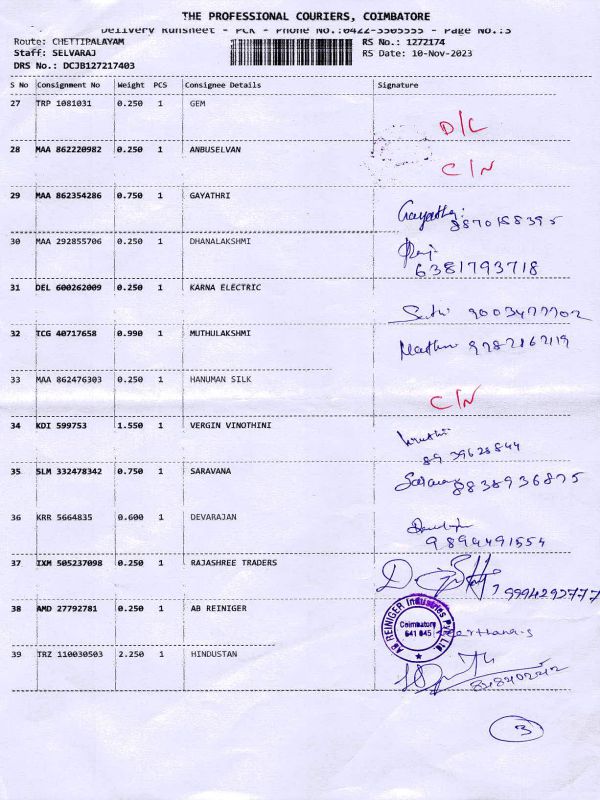 THE PROFESSIONAL COURIERS, COIMBATORE
Delivery Runsheet - PCR - Phone No.:0422-3505555 - Page No.:3
Route: CHETTIPALAYAM RS No.: 1272174
Staff: SELVARAJ RS Date: 10-Nov-2023
DRS No.: DCJB127217403
S No Consignment No Weight PCS Consignee Details Signature
27 TRP 1081031 0.250 1 GEM
D/L
28 MAA 862220982 0.250 1 ANBUSELVAN
C/N
29 MAA 862354286 0.750 1 GAYATHRI
Gayathri
8870158395
30 MAA 292855706 0.250 1 DHANALAKSHMI
6381793718
31 DEL 600262009 0.250 1 KARNA ELECTRIC
9003477702
32 TCG 40717658 0.990 1 MUTHULAKSHMI
33 MAA 862476303 0.250 1 HANUMAN SILK
C/N
34 KDI 599753 1.550 1 VERGIN VINOTHINI
8939628844
35 SLM 332478342 0.750 1 SARAVANA
Saravana 8838936875
36 KRR 5664835 0.600 1 DEVARAJAN
9894491554
37 IXM 505237098 0.250 1 RAJASHREE TRADERS
9994293777
38 AMD 27792781 0.250 1 AB REINIGER
AB REINIGER Industries Pvt. Ltd.
Coimbatore
641 045
39 TRZ 110030503 2.250 1 HINDUSTAN
3